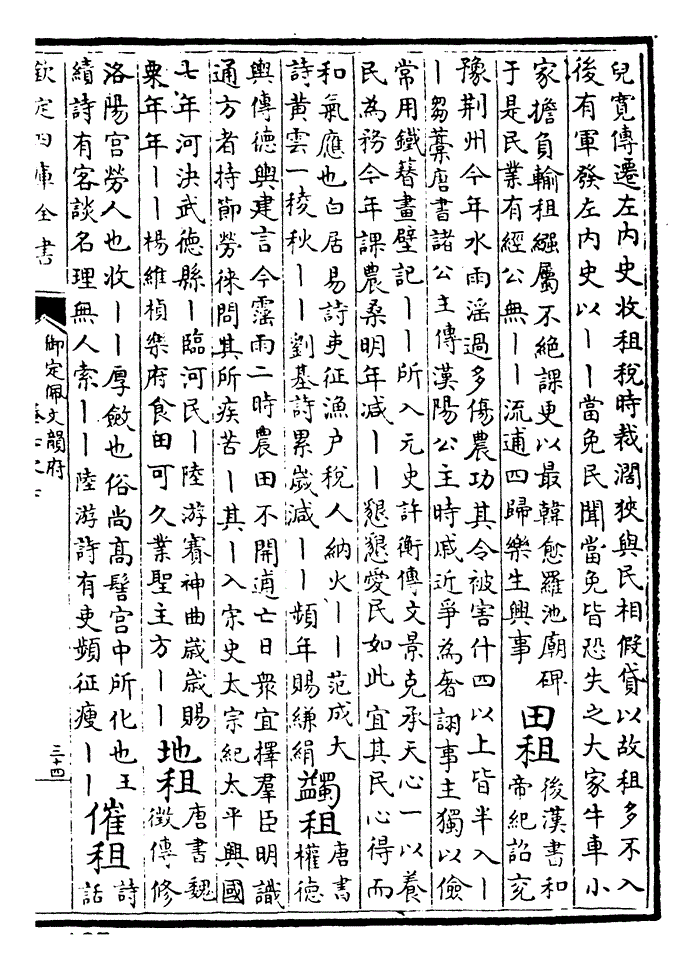 兒寛傳遷左内史收租稅時裁濶狹與民相假貸以故租多不入
後有軍發左内史以丨丨當免民聞當免皆恐失之大家牛車小
家擔負輸租繦屬不絶課更以最韓愈羅池廟碑
于是民業有經公無丨丨流逋四歸樂生興事
田租
後漢書和
帝紀詔兖
豫荆州今年水雨滛過多傷農功其令被害什四以上皆半入丨
丨芻藁唐書諸公主傳漢陽公主時戚近爭為奢詡事主獨以儉
常用鐵簪畫壁記丨丨所入元史許衡傳文景克承天心一以養
民為務今年課農桑明年減丨丨懇懇愛民如此宜其民心得而
和氣應也白居易詩吏征漁户稅人納火丨丨范成大
詩黄雲一稜秋丨丨劉基詩累歲減丨丨頻年賜縑絹
蠲租
唐書
權德
輿傳德輿建言今霪雨二時農田不開逋亡日衆宜擇羣臣明識
通方者持節勞徠問其所疾苦丨其丨入宋史太宗紀太平興國
七年河決武德縣丨臨河民丨陸游賽神曲歲歲賜
粟年年丨丨楊維楨樂府食田可久業聖主方丨丨
地租
唐書魏
徵傳修
洛陽宫勞人也收丨丨厚斂也俗尚髙髻宫中所化也王
績詩有客談名理無人索丨丨陸游詩有吏頻征瘦丨丨
催租
詩
話
欽定四庫全書
御定佩文韻府
三十四